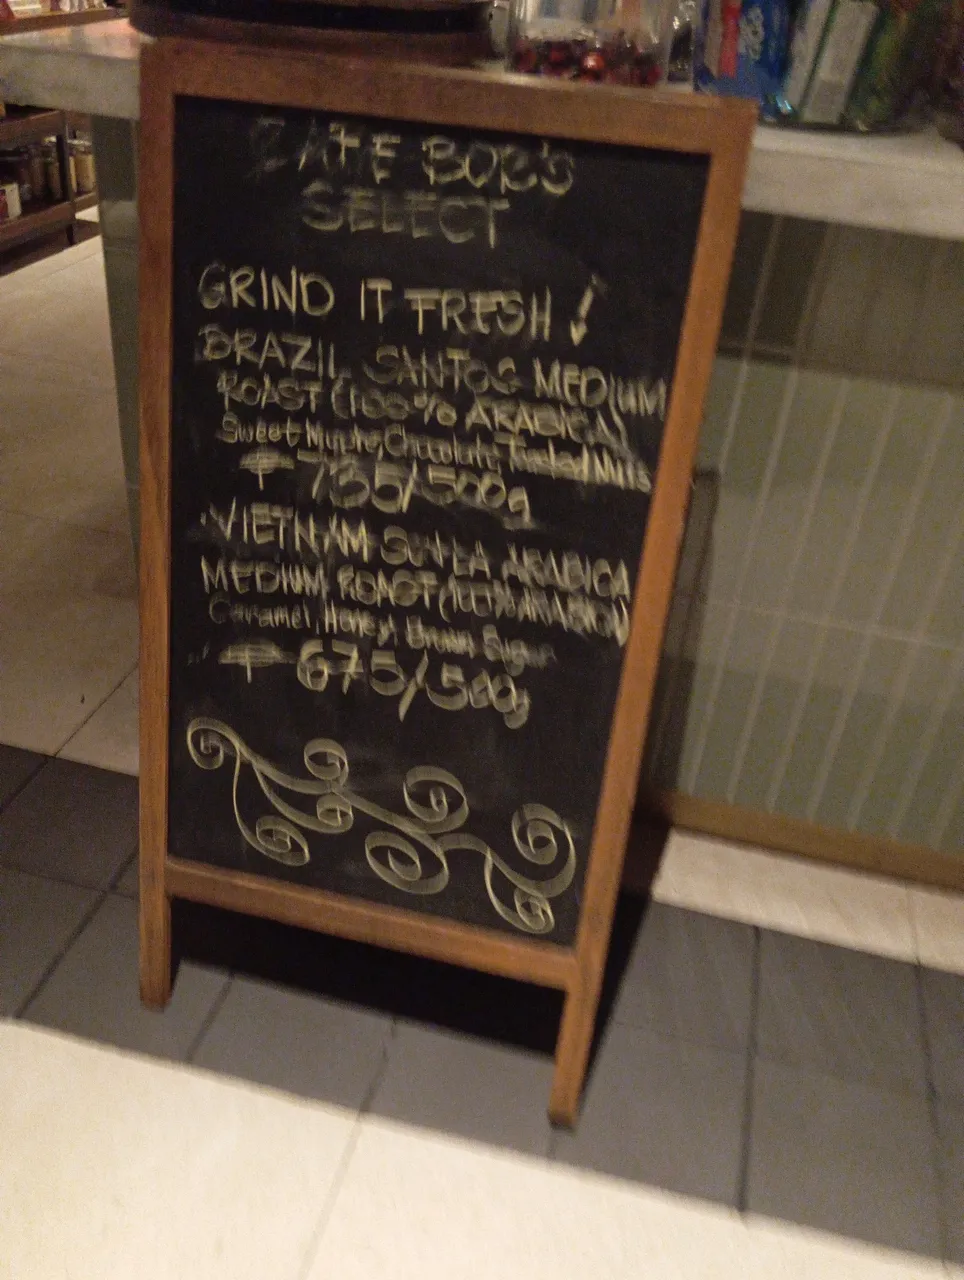 CAFE BOB'S
SELECT
GRIND IT FRESH!
BRAZIL SANTOS MEDIUM
ROAST (100% ARABICA)
Sweet Chocolate, Toasted Nuts
₱ 735/500g
VIETNAM SƠN LA ARABICA
MEDIUM ROAST (100% ARABICA)
Caramel, Honey, Brown Sugar
₱ 675/500g